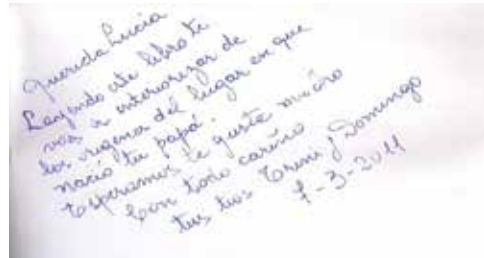 Querida Lucía
Leyendo este libro te
vas a interiorizar de
los orígenes del lugar en que
nació tu papá.
Esperamos te guste mucho
Con todo cariño
tus tíos Trini y Domingo
7-3-2011